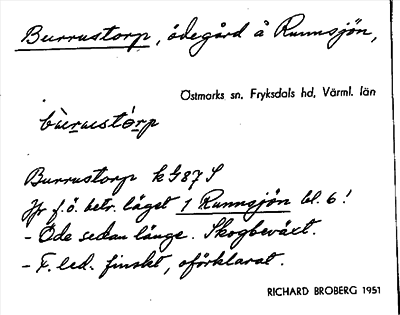 Burrustorp, ödegård å Runnsjön,
Östmarks sn, Fryksdals hd, Värml. län
bùrustó̀rp
Burrustorp kG 87 S
Jfr f.ö. betr. läget 1 Runnsjön bl. 6!
- Öde sedan länge. Skogbeväxt.
- F. led. finskt, oförklarat.
RICHARD BROBERG 1951